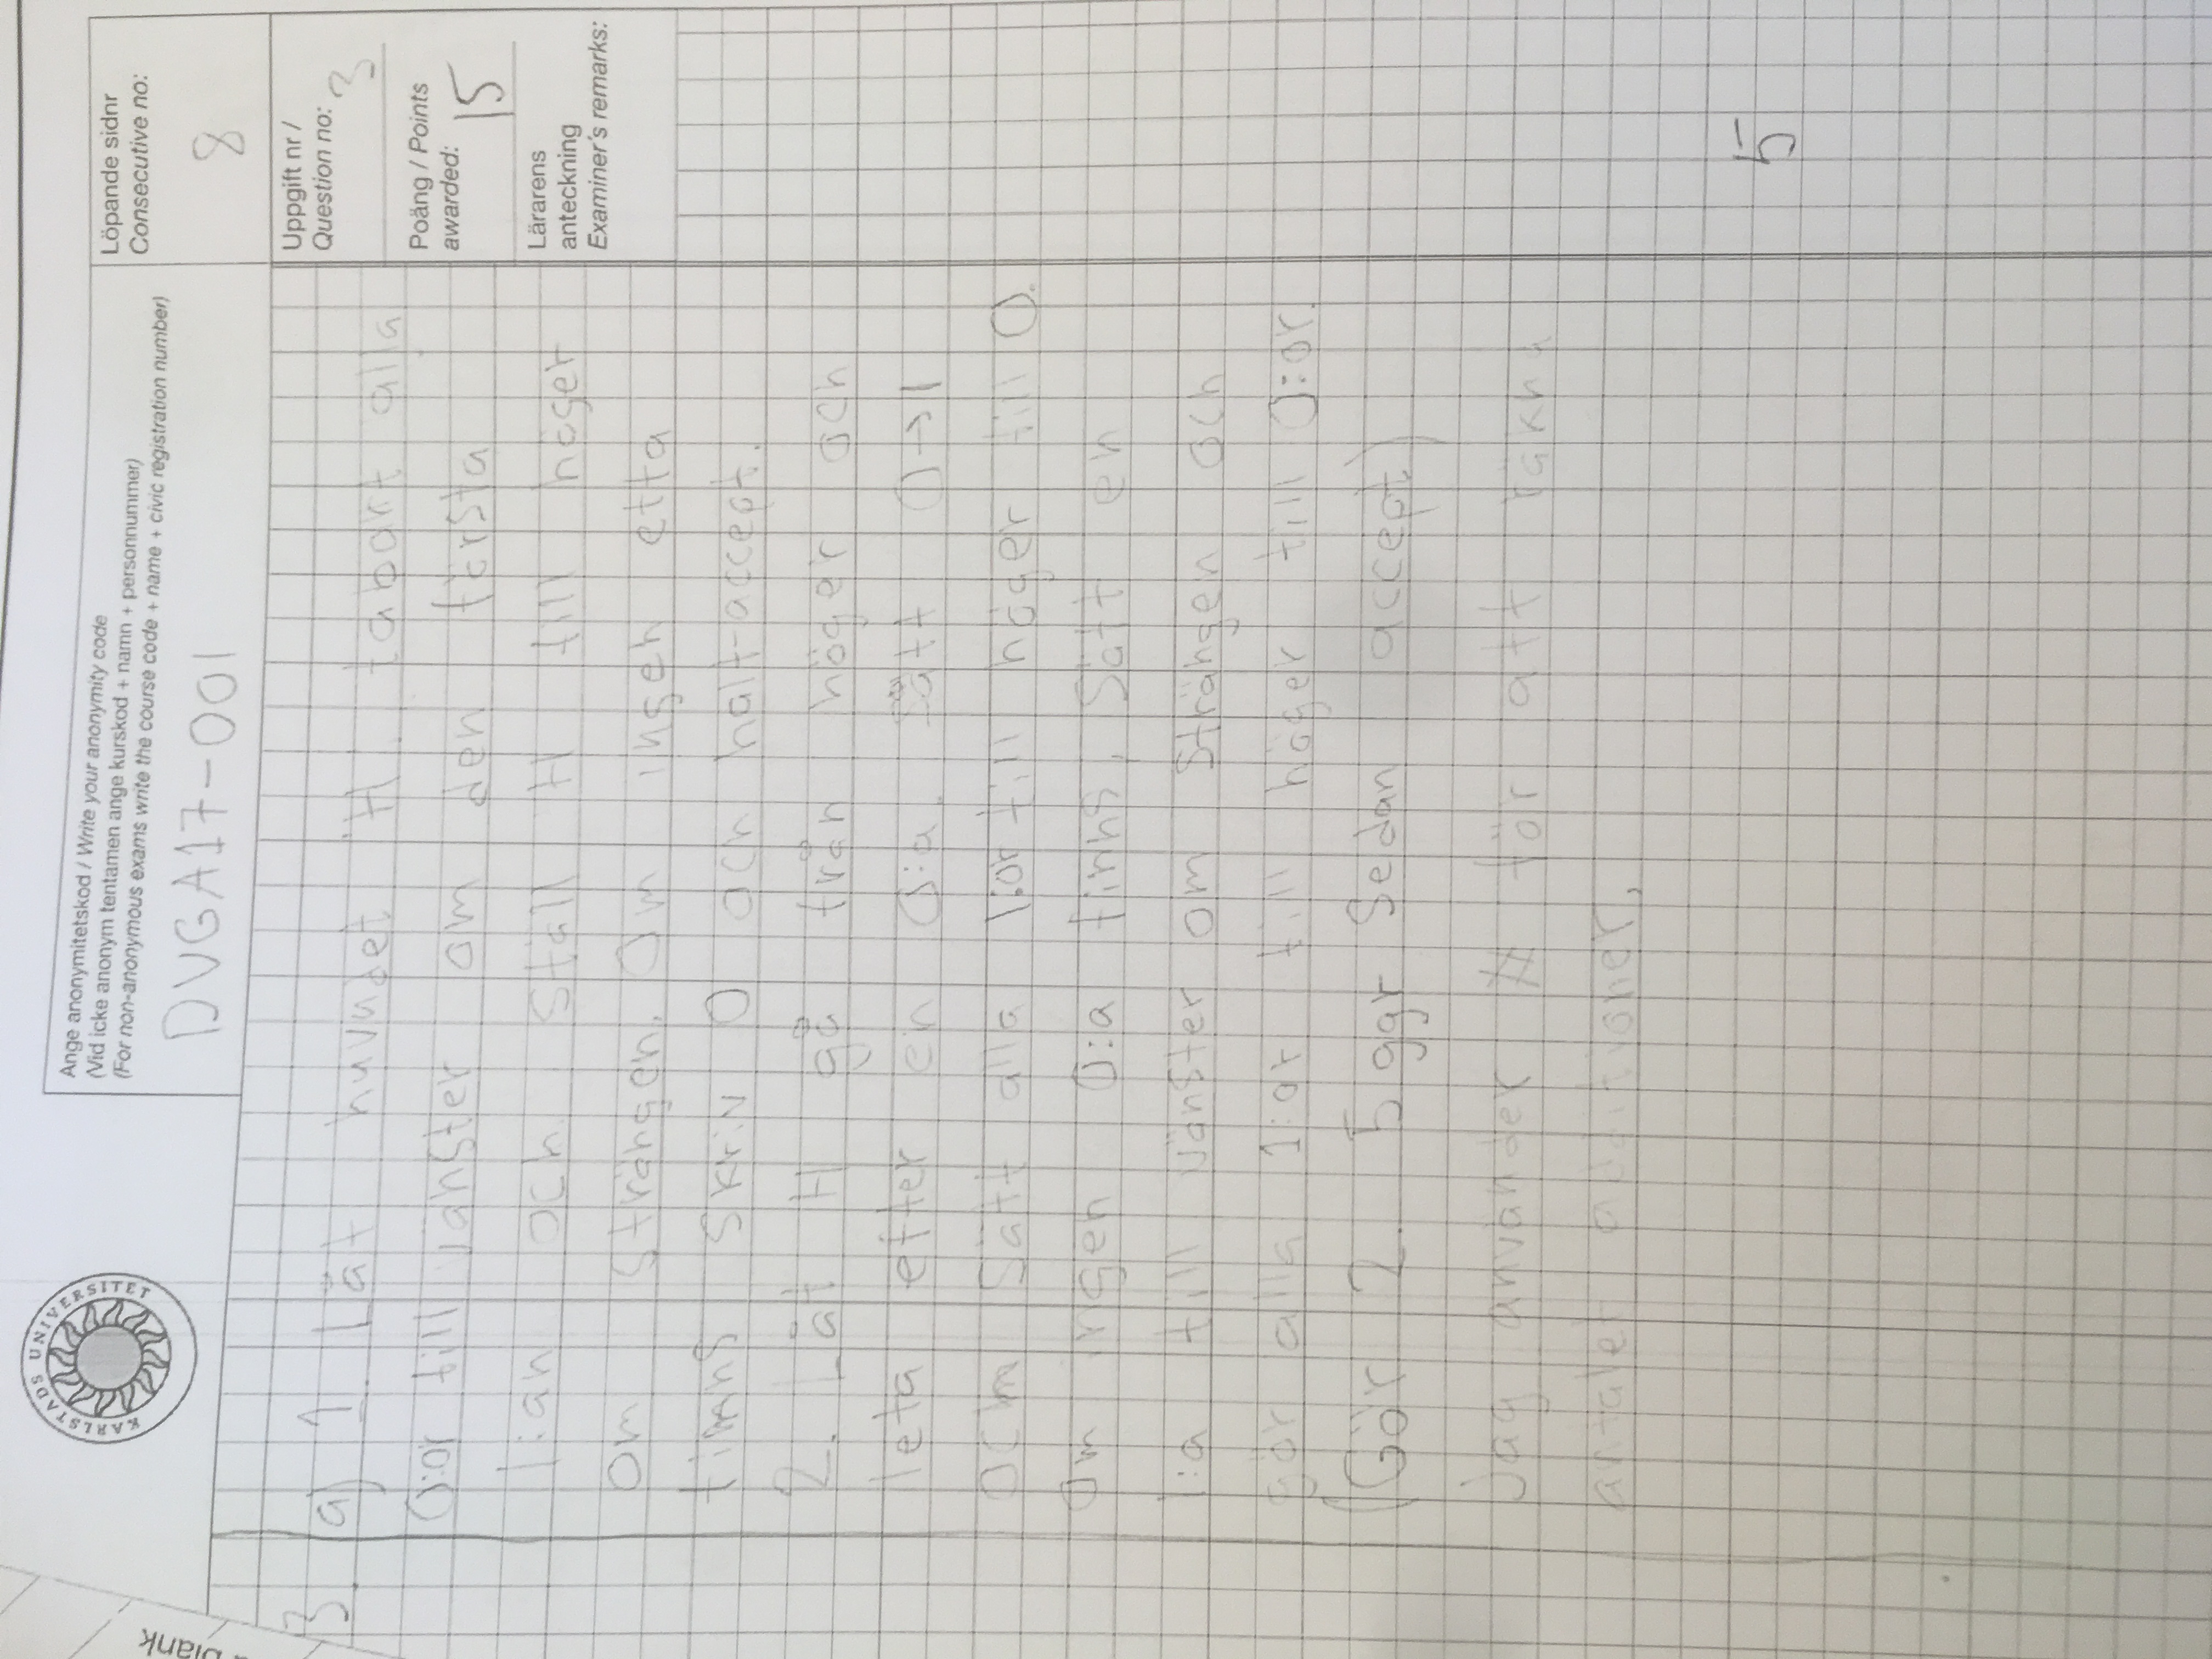 blank
KARLSTADS UNIVERSITET
Ange anonymitetskod / Write your anonymity code
(Vid icke anonym tentamen ange kurskod + namn + personnummer)
(For non-anonymous exams write the course code + name + civic registration number)
DVGA17-001
Löpande sidnr
Consecutive no:
8
Uppgift nr /
Question no: 3
Poäng / Points
awarded: 15
Lärarens
anteckning
Examiner's remarks:
3. a) 1. Låt huvudet H tabort alla
0:or till vänster om den första
1:an och ställ H till höger
om strängen. Om ingen etta
finns skriv 0 och halt-accept.
2. Låt H gå från höger och
leta efter en 0:a. Sätt 0→1
och sätt alla 1:or till höger till 0.
Om ingen 0:a finns, sätt en
1:a till vänster om strängen och
gör alla 1:or till höger till 0:or.
(Gör 2. 5 ggr sedan accept)
Jag använder # för att räkna
antalet additioner.
5